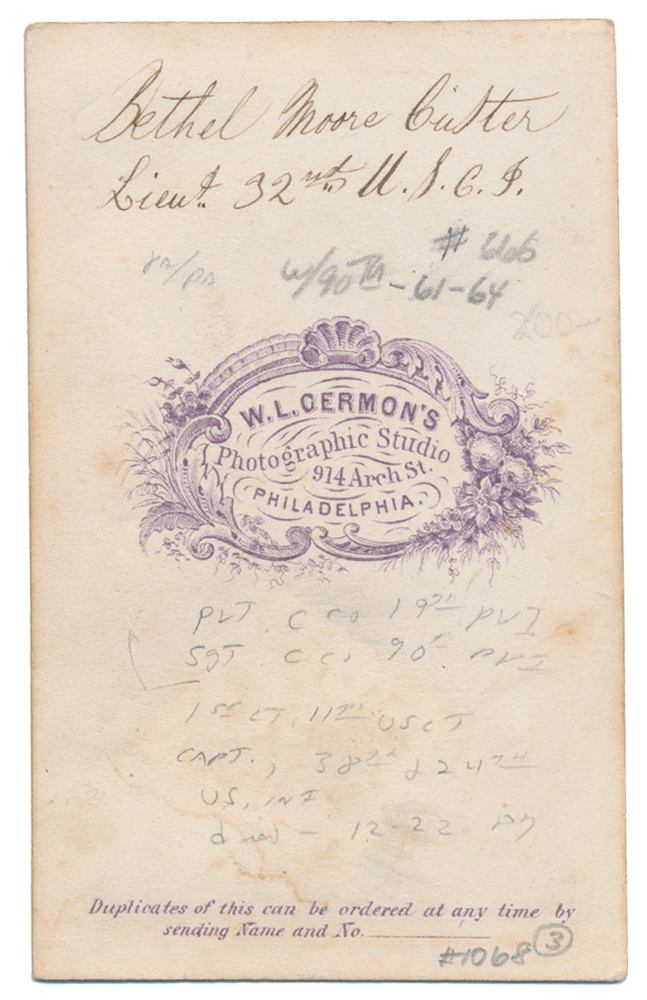 Bethel Moore Custer
Lieut. 32nd U.S.C.I.
# 666
w/90TH - 61-64
200-
W.L. GERMON'S
Photographic Studio
914 Arch St.
PHILADELPHIA.
PVT C CO 19TH PVI
SGT C CO 90TH PVI
1ST LT 11TH USCT
CAPT., 38TH & 24TH
US, INF
died - 12-22
Duplicates of this can be ordered at any time by
sending Name and No.
#1068 3